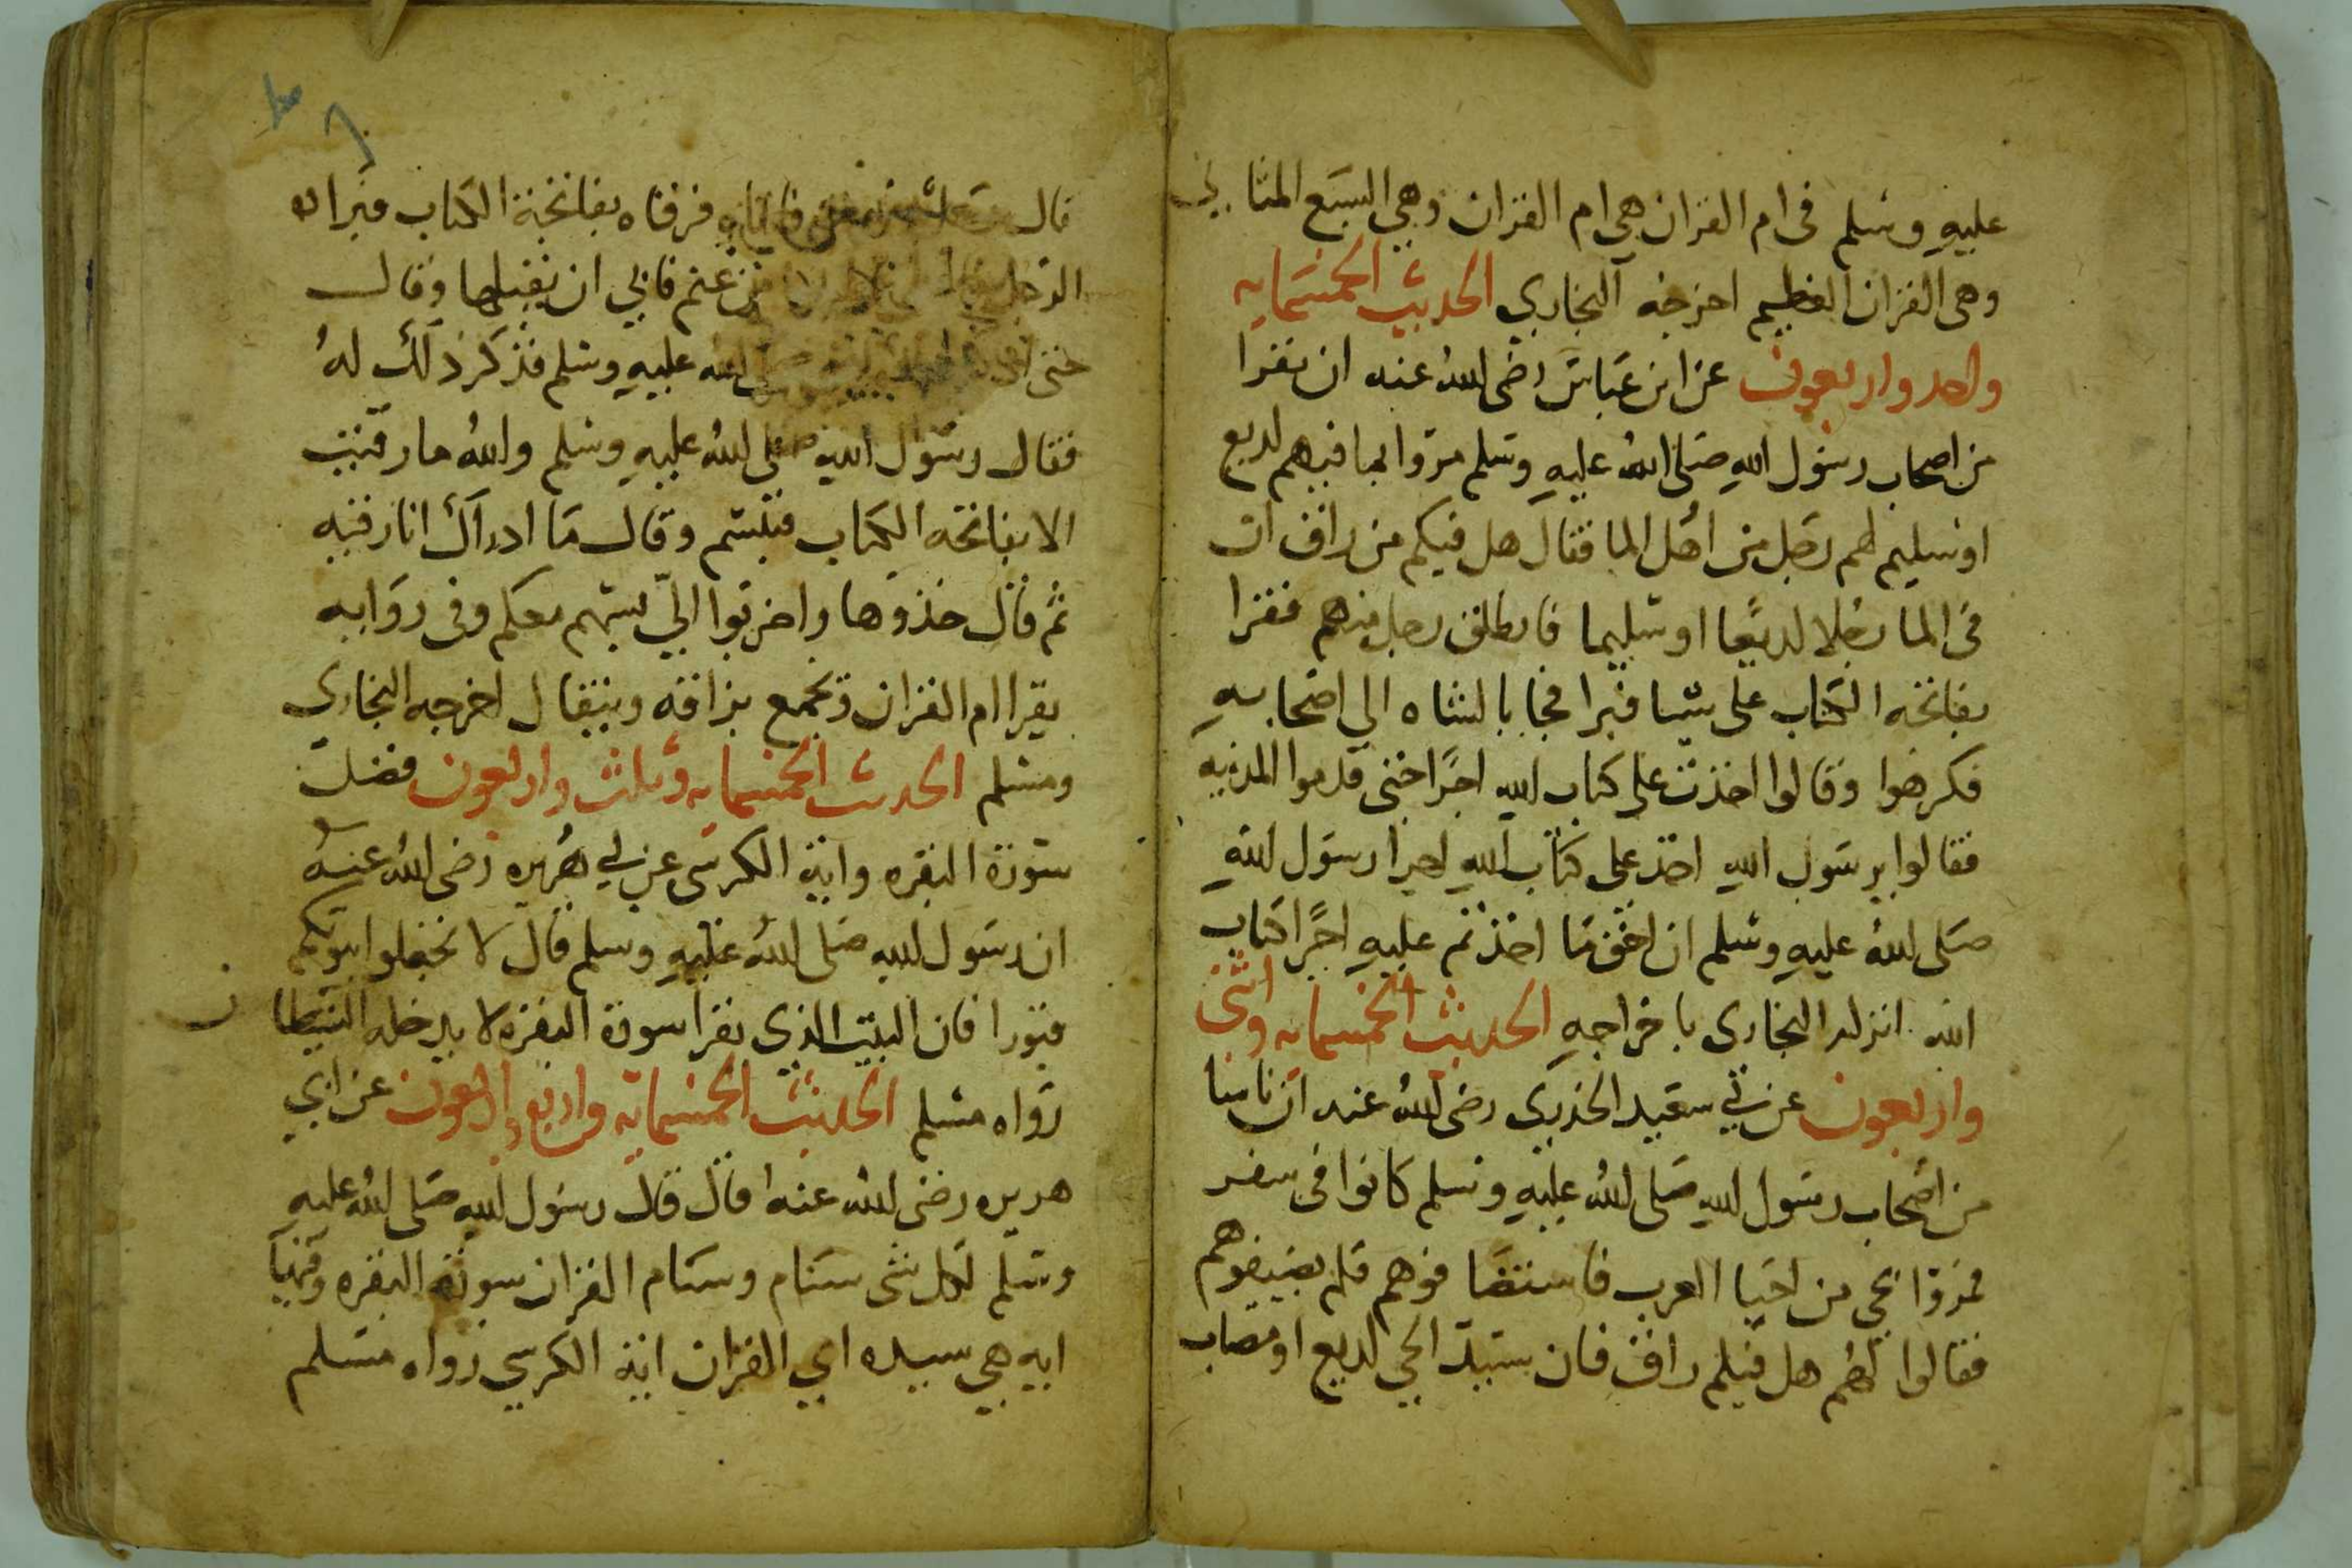 عليه وسلم فى ام القران هى ام القران وهى السبع المثاني
وهى القران العظيم اخرجه البخاري الحديث الخمسمايه
واحد واربعون عن ابن عباس رضى الله عنه ان نفرا
من اصحاب رسول الله صلى الله عليه وسلم مروا بما فيهم لديغ
او سليم لهم رجل من اهل الما فقال هل فيكم من راق ان
فى الما رجلا لديغا او سليما فانطلق رجل منهم فقرا
بفاتحه الكتاب على شا فبرا فجا بالشاه الى اصحابه
فكرهوا وقالوا اخذت على كتاب الله اجرا حتى قدموا المدينه
فقالوا يرسول الله اخذ على كتاب الله اجرا رسول الله
صلى الله عليه وسلم ان احق ما اخذتم عليه اجرا كتاب
الله انزلد البخارى باخراجه الحديث الخمسمايه واثنى
واربعون عن بي سعيد الخدرى رضى الله عنه ان ناسا
من اصحاب رسول الله صلى الله عليه وسلم كانوا فى سفر
فمروا بحي من احيا العرب فاستضافوهم فلم يضيفوهم
فقالوا لهم هل فيكم راق فان سيد الحي لديغ او مصاب
قال فرقاه بفاتحة الكتاب فبرا
الرجل غنم فابي ان يقبلها وقال
حتى الله عليه وسلم فذكر ذلك له
فقال رسول الله صلى الله عليه وسلم والله ما رقيت
الا بفاتحه الكتاب فتبسم وقال ما ادراك انا رقيه
ثم قال خذوها واضربوا اليّ بسهم معكم وفى روايه
يقرا ام القران ويجمع بزاقه ويتفال اخرجه البخاري
ومسلم الحديث الخمسمايه وثلث واربعون فضل
سورة البقره واية الكرسى عن بي هريره رضى الله عنه
ان رسول الله صلى الله عليه وسلم قال لا تجعلوا بيوتكم
قبورا فان البيت الذي يقرا سورة البقره لا يدخله الشيطان
رواه مسلم الحديث الخمسمايه واربع واربعون عن ابي
هريره رضى الله عنه قال قال رسول الله صلى الله عليه
وسلم لكل شى سنام وسنام القران سورة البقره وفيها
ايه هي سيده اي القران اية الكرسي رواه مسلم